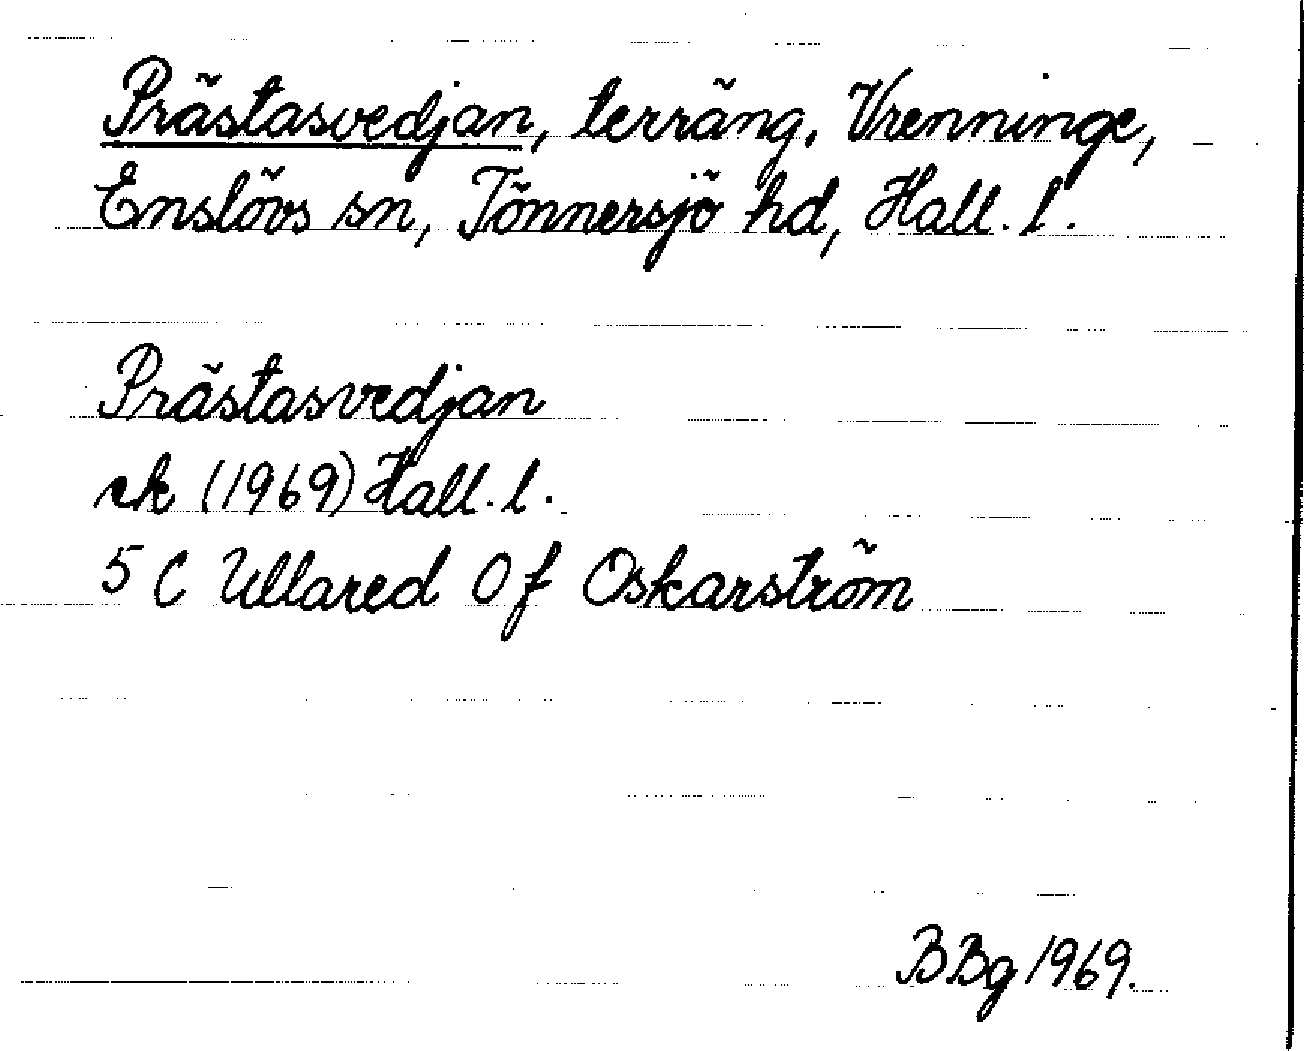 Prästasvedjan, terräng, Vrenninge,
Enslövs sn, Tönnersjö hd, Hall. l.
Prästasvedjan
ek (1969) Hall. l.
5 C Ullared 0 f Oskarström
BBg 1969.